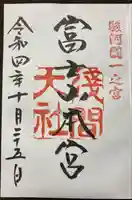 駿河國一之宮
富士本宮
淺間大社
令和四年十月二十五日